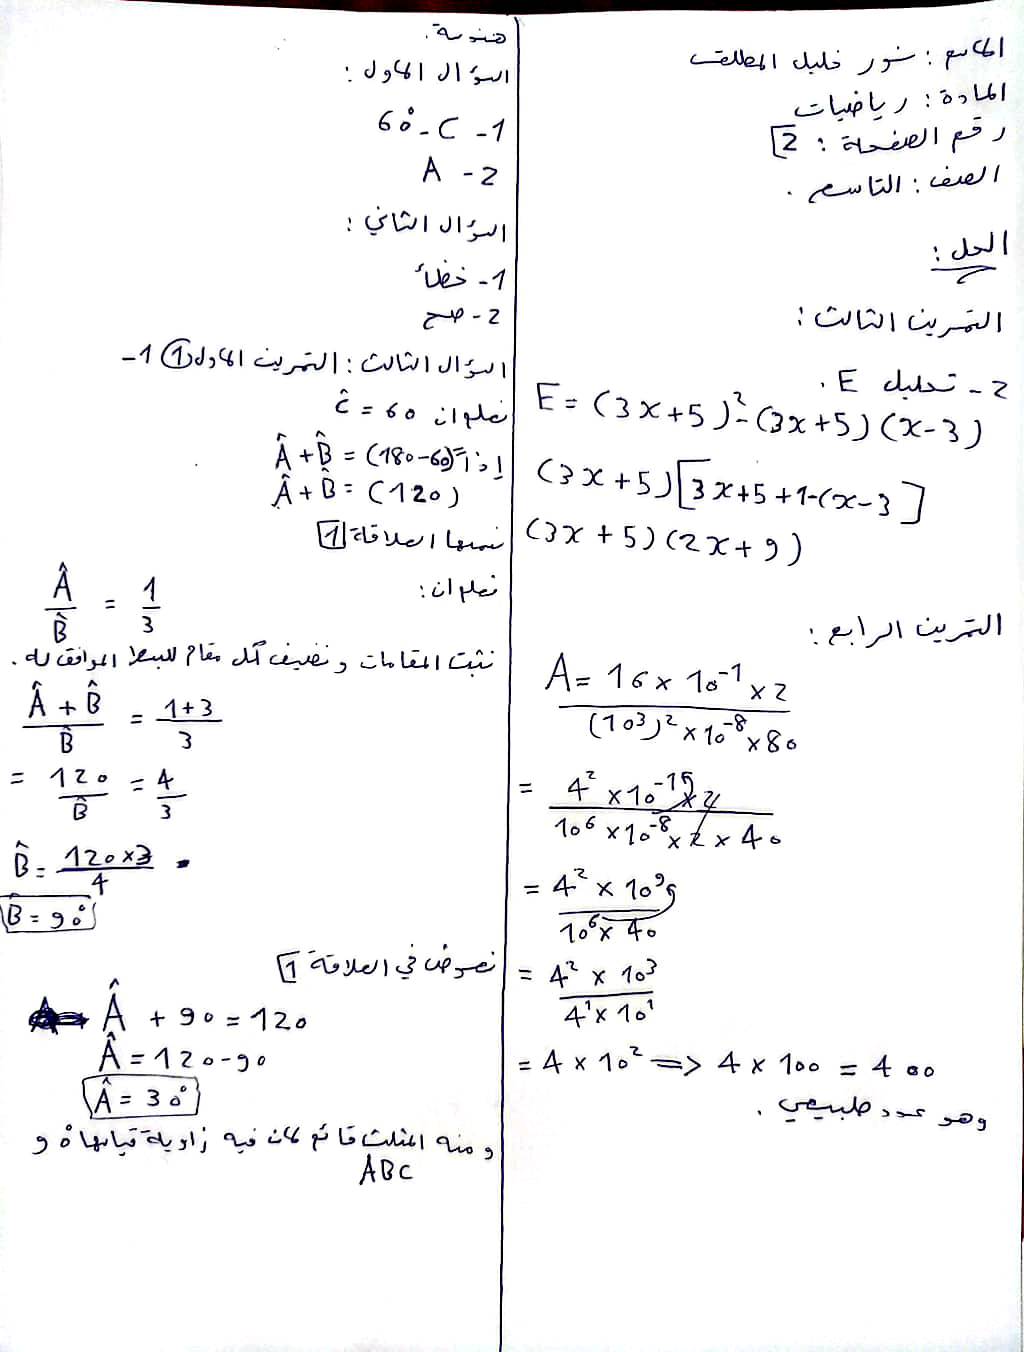 الاسم : نور خليل المطلق
المادة : رياضيات
رقم الصفحة : 2
الصف : التاسع .
الحل :
التمرين الثالث :
2 - تحليل E .
E = (3x+5)² - (3x+5)(x-3)
(3x+5)[3x+5+1-(x-3]
(3x+5)(2x+9)
التمرين الرابع :
A = 16 × 10⁻¹ × 2
(10³)² × 10⁻⁸ × 80
= 4² × 10⁻¹⁵ × 2
10⁶ × 10⁻⁸ × 2 × 40
= 4² × 10⁹
10⁶ × 40
= 4² × 10³
4¹ × 10¹
= 4 × 10² => 4 × 100 = 400
وهو عدد طبيعي .
هندسة .
السؤال الاول :
1 - C - 60°
2 - A
السؤال الثاني :
1 - خطأ
2 - صح
السؤال الثالث : التمرين الاول 1 1 -
نعلم ان Ĉ = 60
إذاً Â + B̂ = (180-60)=
Â + B̂ = (120)
نسميها العلاقة 1
نعلم ان :
Â / B̂ = 1 / 3
نثبت المقامات و نضيف كل مقام للبسط الموافق له .
Â + B̂ / B̂ = 1+3 / 3
= 120 / B̂ = 4 / 3
B̂ = 120×3 / 4
B̂ = 90°
نعوض في العلاقة 1
Â + 90 = 120
Â = 120-90
Â = 30°
و منه المثلث قائم لان فيه زاوية قياسها 90°
ABC